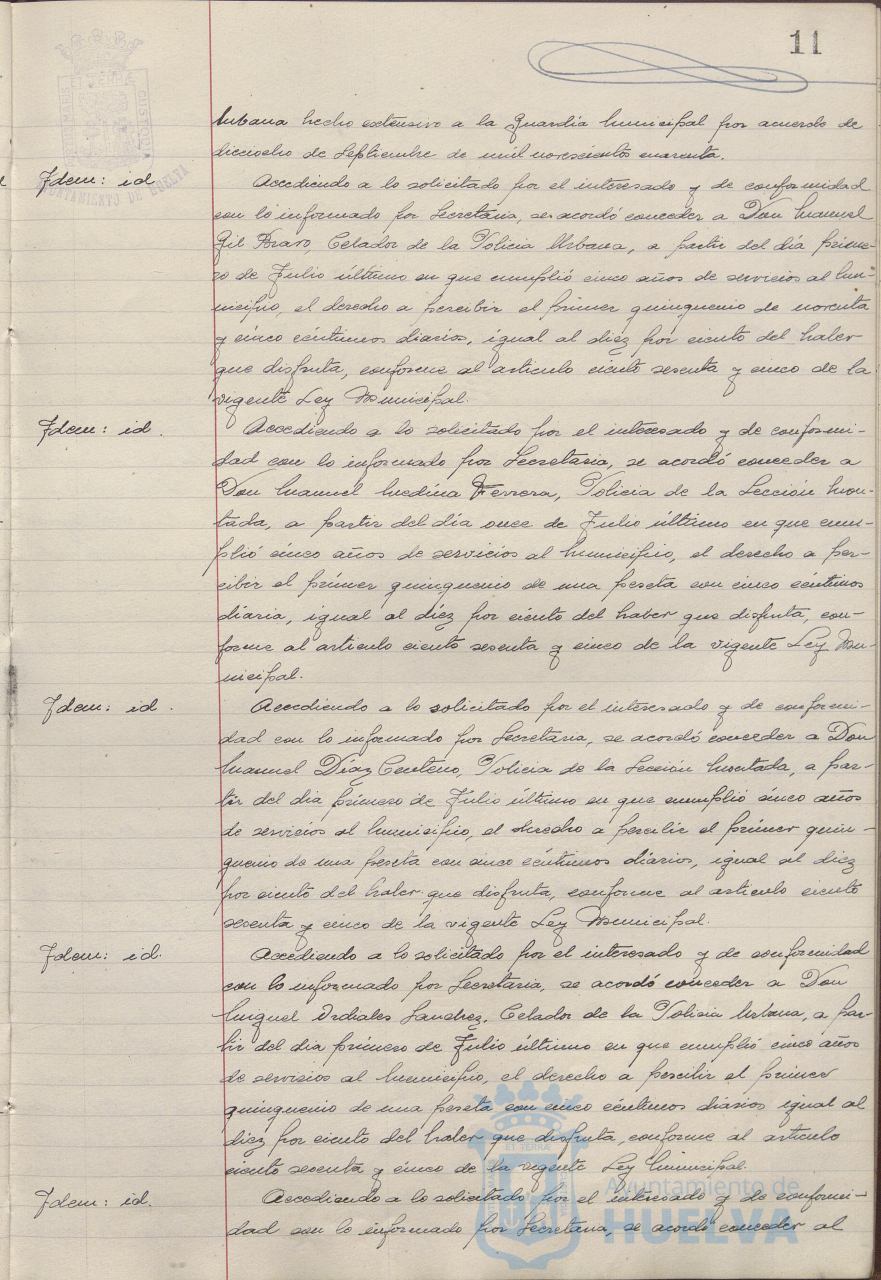 11
Urbana hecho extensivo a la Guardia Municipal por acuerdo de
dieciocho de Septiembre de mil novecientos cuarenta.
Idem: id
Accediendo a lo solicitado por el interesado y de conformidad
con lo informado por Secretaria, se acordó conceder a Don Manuel
Gil Bravo, Celador de la Policia Urbana, a partir del día prime-
ro de Julio último en que cumplió cinco años de servicios al Mu-
nicipio, el derecho a percibir el primer quinquenio de noventa
y cinco céntimos diarios, igual al diez por ciento del haber
que disfruta, conforme al articulo ciento sesenta y cinco de la
vigente Ley Municipal.
Idem: id.
Accediendo a lo solicitado por el interesado y de conformi-
dad con lo informado por Secretaria, se acordó conceder a
Don Manuel Medina Ferrera, Policia de la Sección Mon-
tada, a partir del día once de Julio último en que cum-
plió cinco años de servicios al Municipio, el derecho a per-
cibir el primer quinquenio de una peseta con cinco céntimos
diaria, igual al diez por ciento del haber que disfruta, con-
forme al articulo ciento sesenta y cinco de la vigente Ley Mu-
nicipal.
Idem: id.
Accediendo a lo solicitado por el interesado y de conformi-
dad con lo informado por Secretaria, se acordó conceder a Don
Manuel Díaz Centeno, Policia de la Sección Montada, a par-
tir del dia primero de Julio último en que cumplió cinco años
de servicios al Municipio, el derecho a percibir el primer quin-
quenio de una peseta con cinco céntimos diarios, igual al diez
por ciento del haber que disfruta, conforme al articulo ciento
sesenta y cinco de la vigente Ley Municipal.
Idem: id.
Accediendo a lo solicitado por el interesado y de conformidad
con lo informado por Secretaria, se acordó conceder a Don
Miguel Ordiales Sanchez, Celador de la Policia Urbana, a par-
tir del dia primero de Julio último en que cumplió cinco años
de servicios al Municipio, el derecho a percibir el primer
quinquenio de una peseta con cinco céntimos diarios igual al
diez por ciento del haber que disfruta, conforme al articulo
ciento sesenta y cinco de la vigente Ley Municipal.
Idem: id.
Accediendo a lo solicitado por el interesado y de conformi-
dad con lo informado por Secretaria, se acordó conceder al
Ayuntamiento de
HUELVA